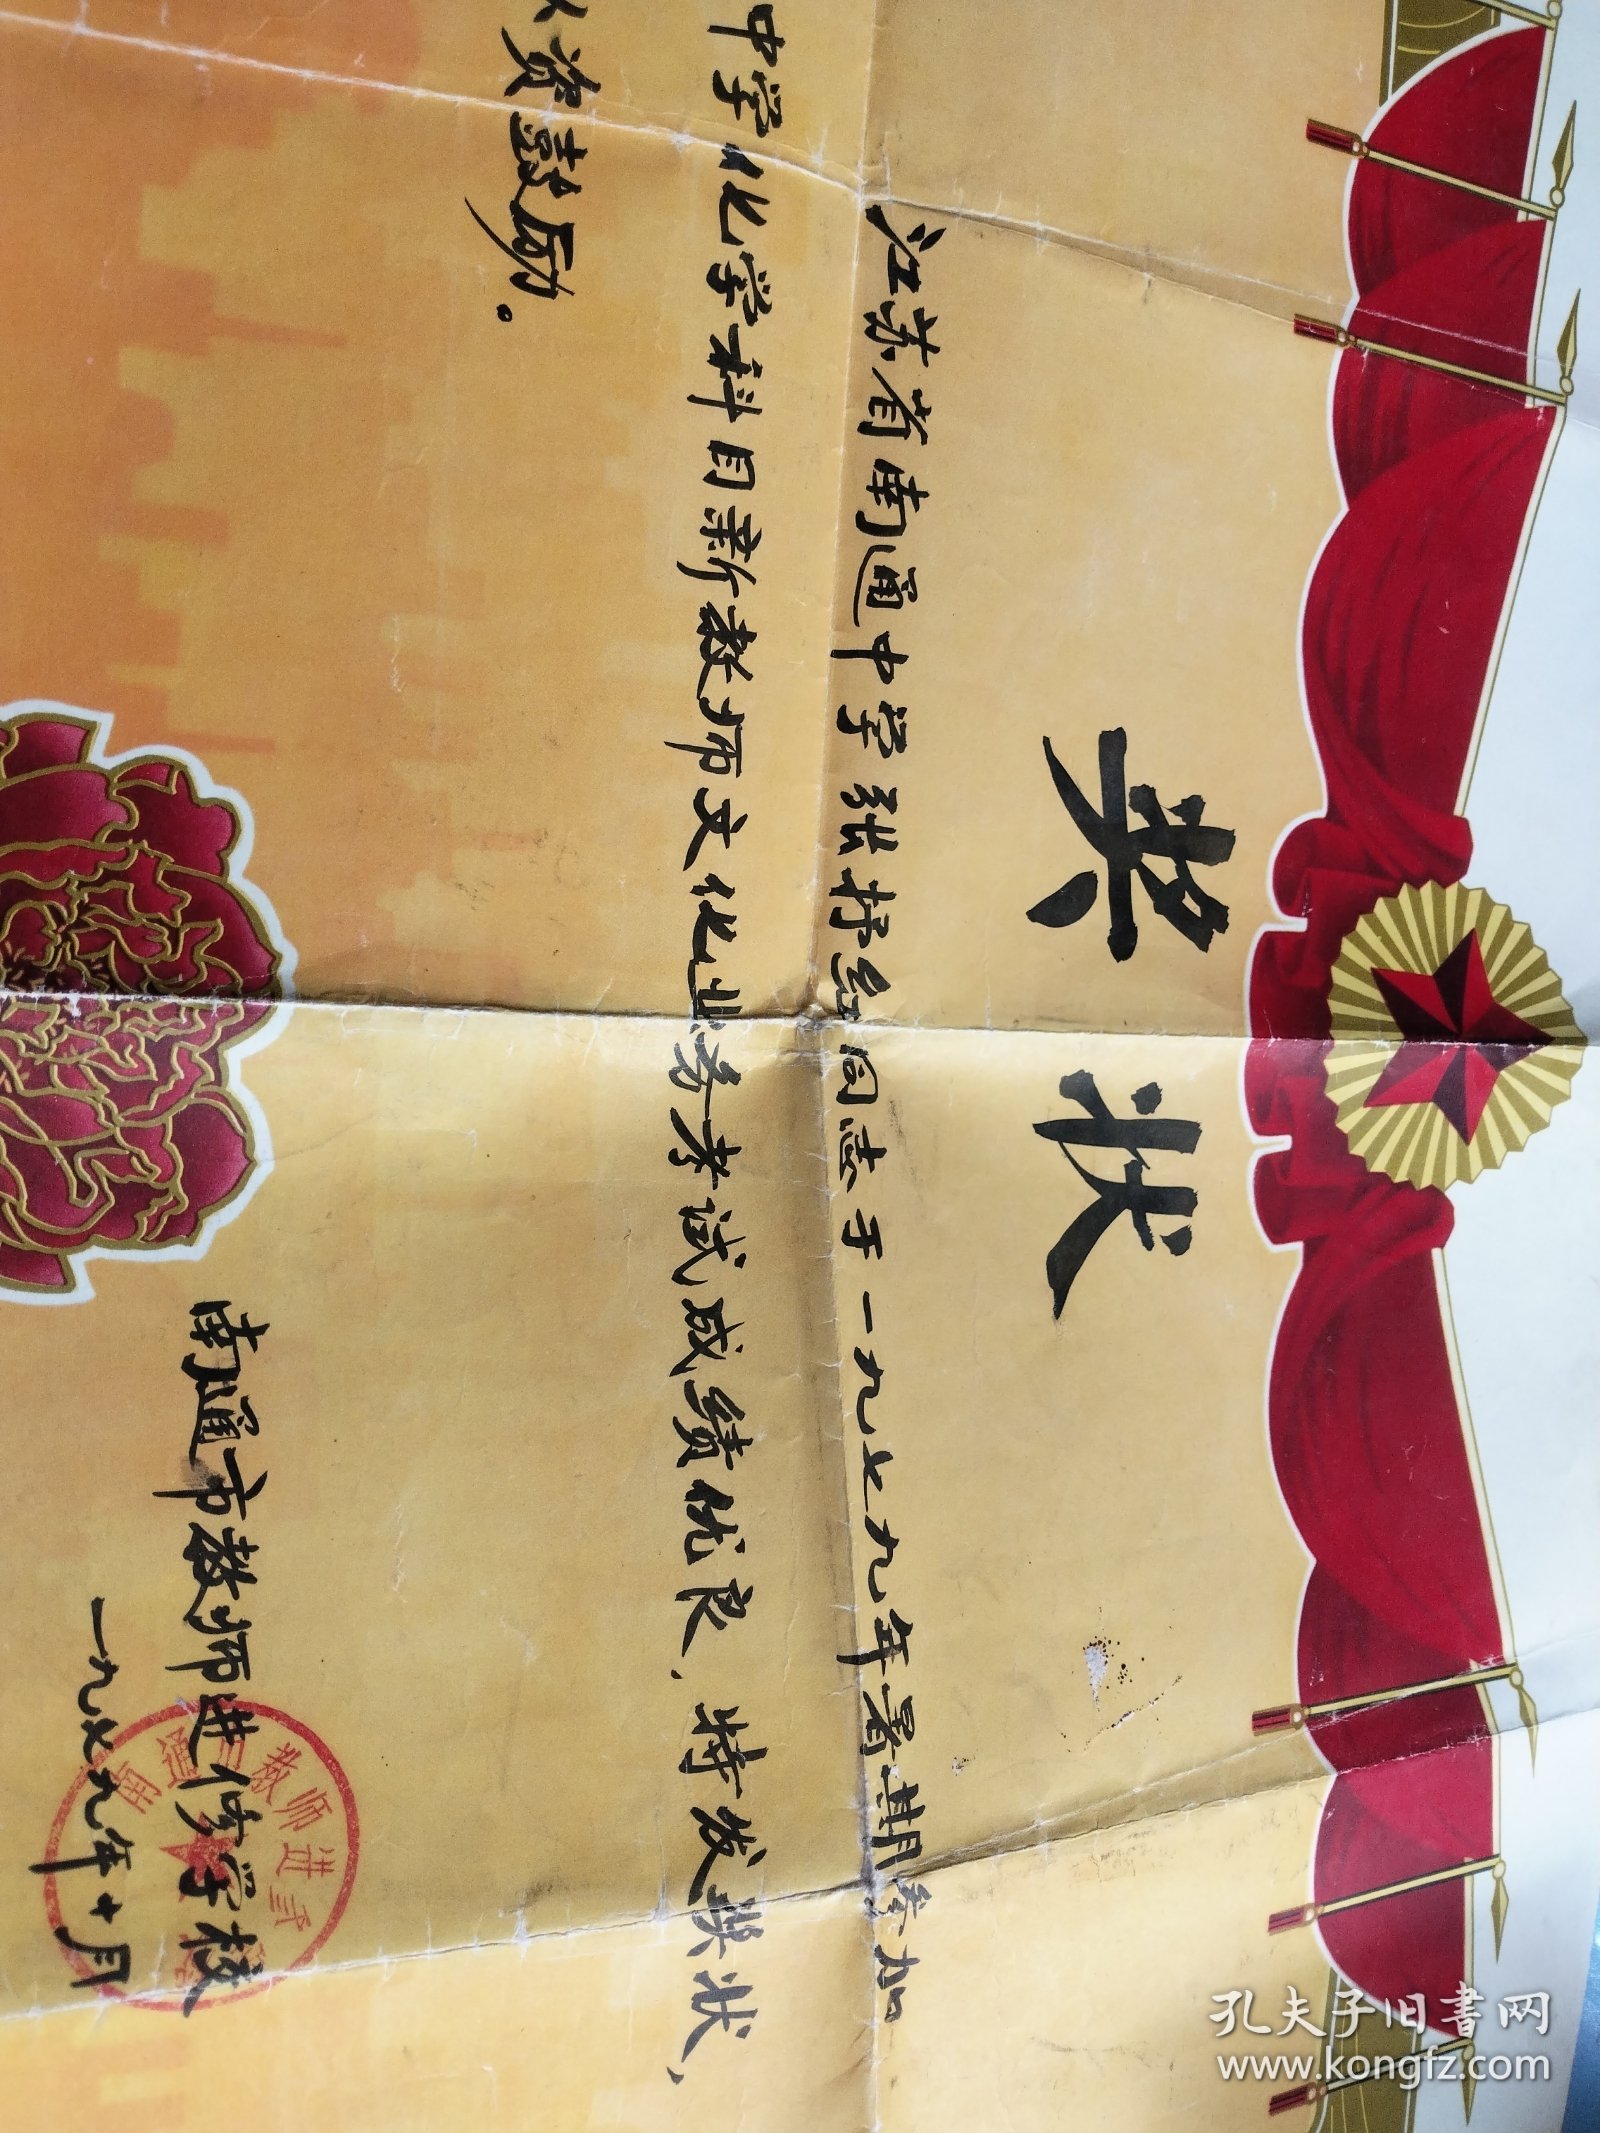 奖 状
江苏省南通中学张抒红同志于一九七九年暑期参加
中学化学科目新教师文化业务考试成绩优良、特发奖状、
以资鼓励。
南通市教师进修学校
一九七九年十月
孔夫子旧書网
www.kongfz.com